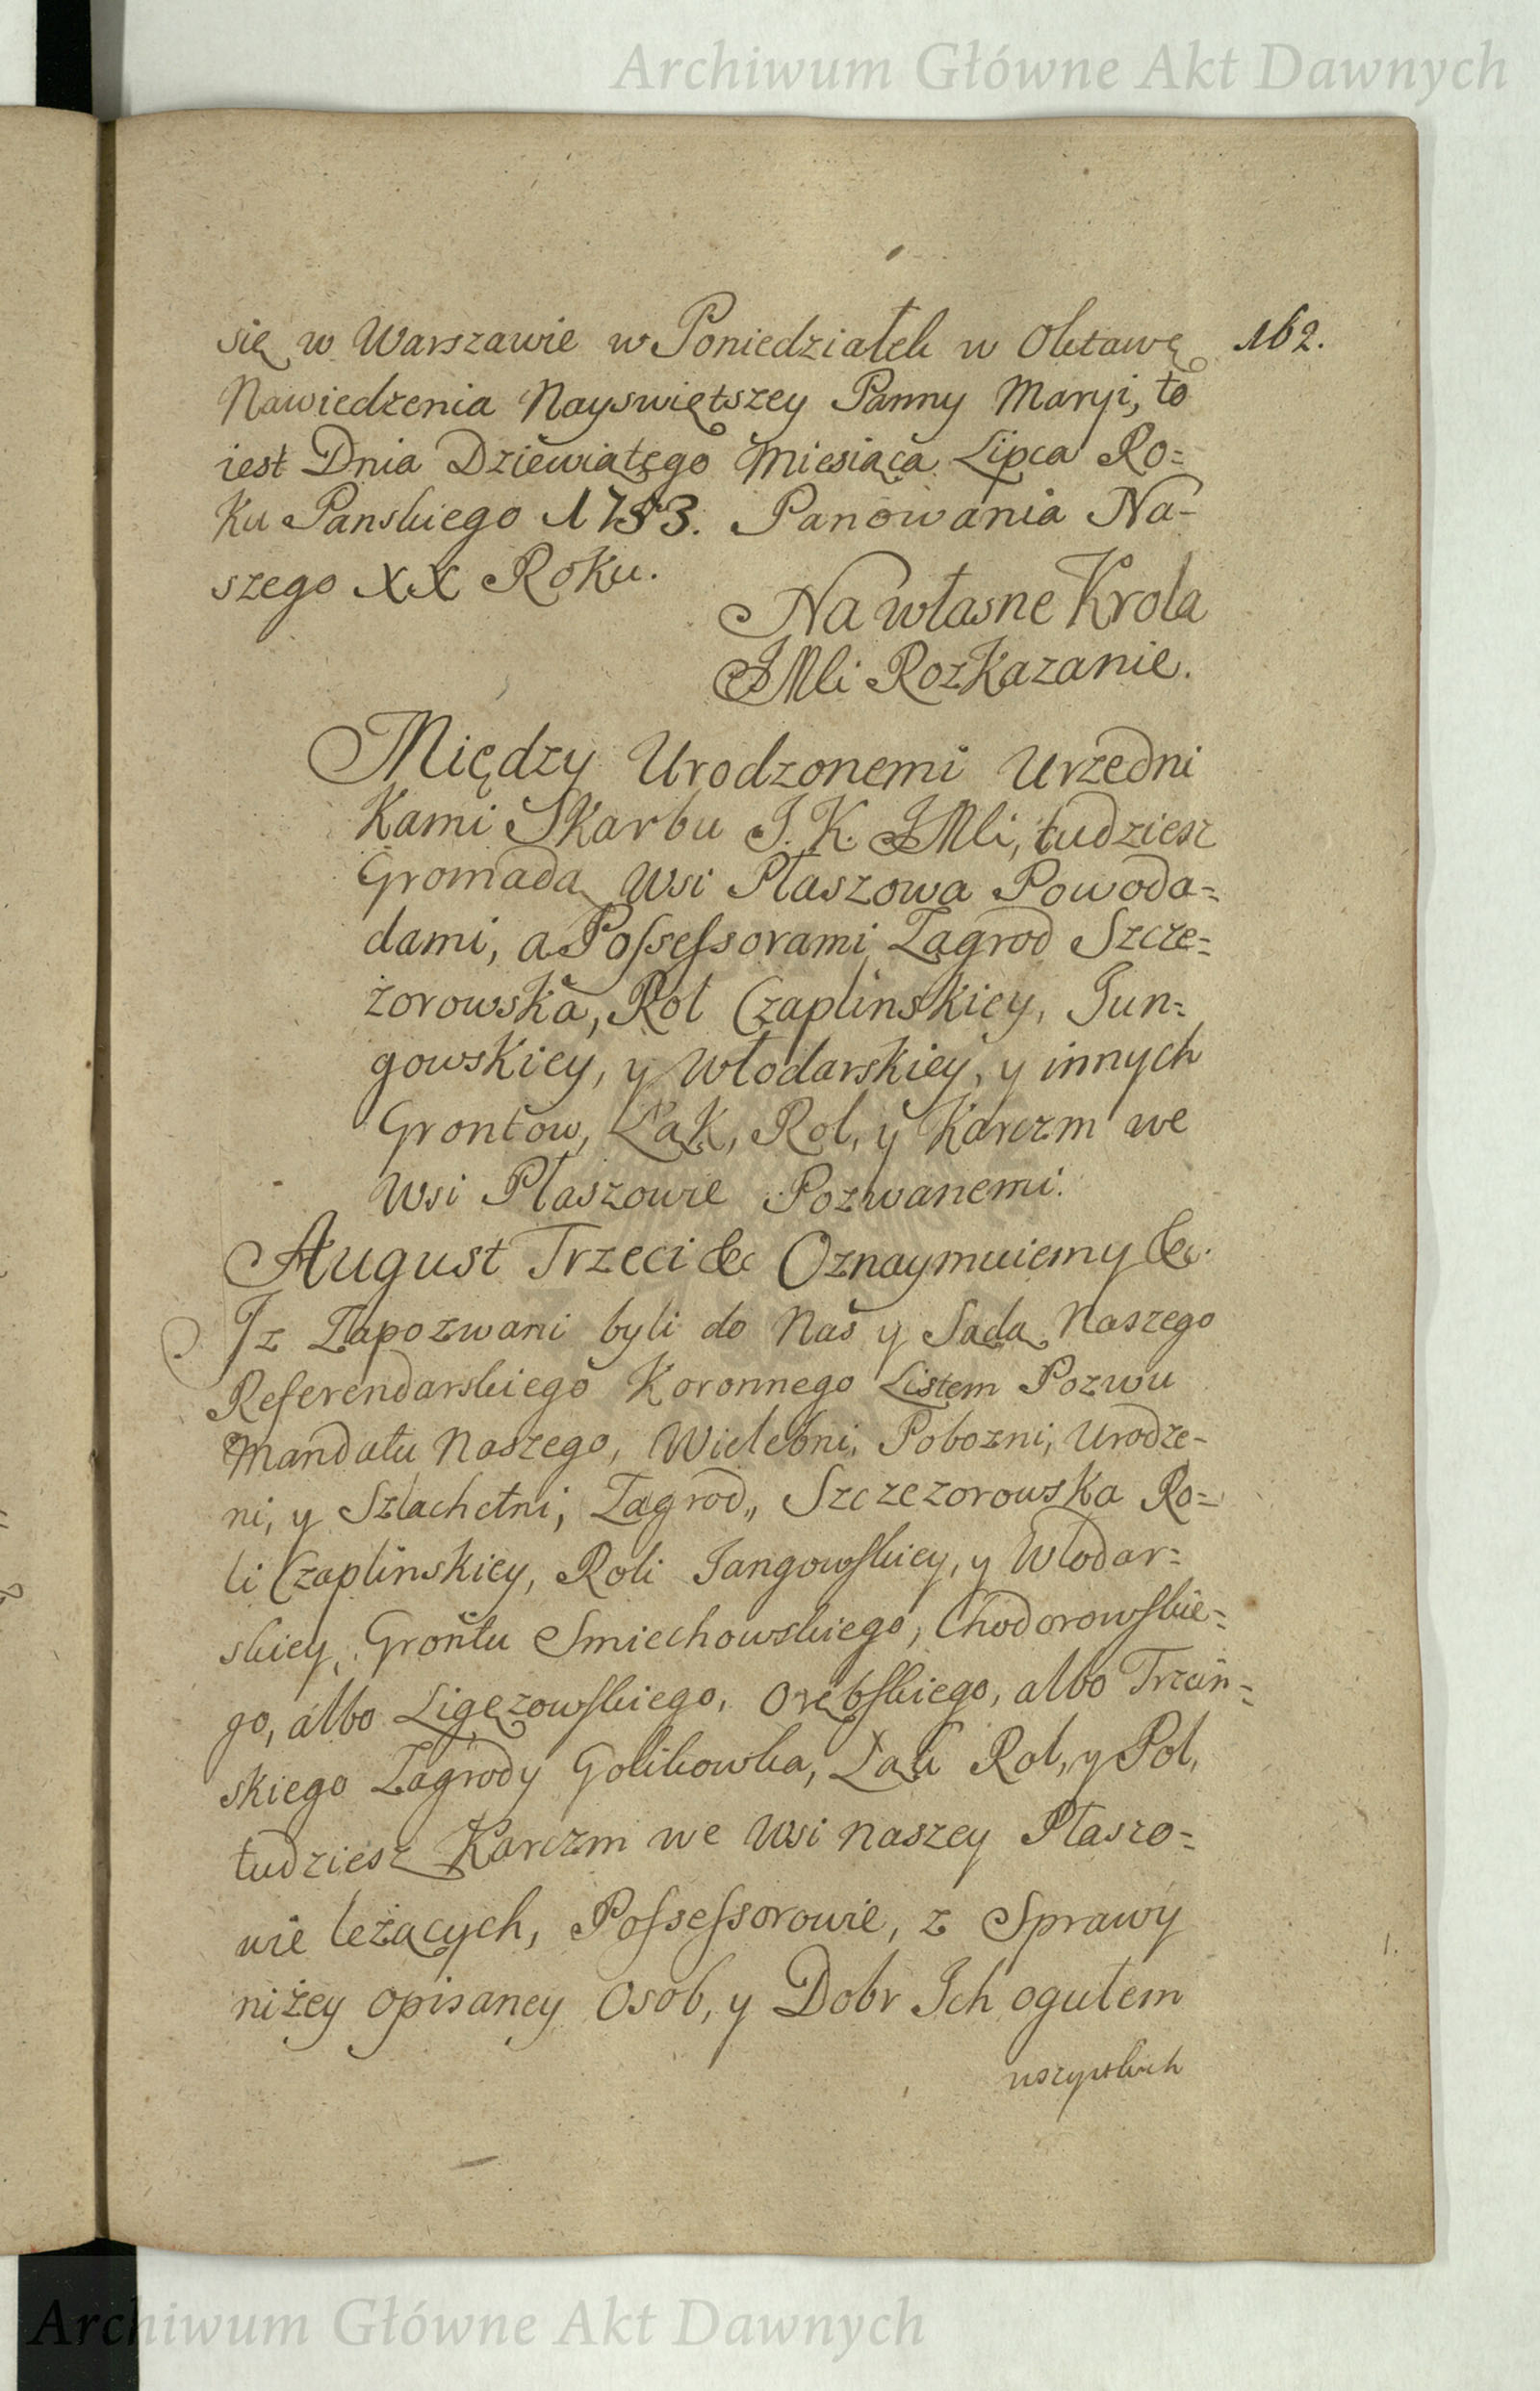 Archiwum Główne Akt Dawnych
się w Warszawie w Poniedziałek w Oktawę 162.
Nawiedzenia Nayswiętszey Panny Maryi, to
iest Dnia Dziewiątego Miesiąca Lipca Ro=
ku Panskiego 1753. Panowania Na-
szego XX Roku.
Na własne Krola
JMci Rozkazanie.
Między Urodzonemi Urzedni
kami Skarbu J. K. JMci, tudziesz
Gromadą Wsi Płaszowa Powoda=
dami, a Possessorami Zagrod Szcze=
żorowska, Rol Czaplinskiey, Jun=
gowskiey, y Włodarskiey, y innych
Grontow, Łąk, Rol, y Karczm we
Wsi Płaszowie Pozwanemi.
August Trzeci &c Oznaymuiemy &c.
Iz Zapozwani byli do Nas y Sądą Naszego
Referendarskiego Koronnego Listem Pozwu
Mandatu Naszego, Wielebni, Pobozni, Urodze-
ni, y Szlachetni, Zagrod,, Szczezorowska Ro=
li Czaplinskiey, Roli Jangowskiey, y Włodar=
skiey, Grontu Smiechowskiego, Chodorowskie=
go, albo Ligęzowskiego, Orębskiego, albo Trzcin=
skiego Zagrody Golikowka, Łąk Rol, y Pol,
tudziesz Karczm we Wsi naszey Płaszo=
wie leżących, Possessorowie, z Sprawy
niżey opisaney Osob, y Dobr Ich ogułem
wszystkich
Archiwum Główne Akt Dawnych